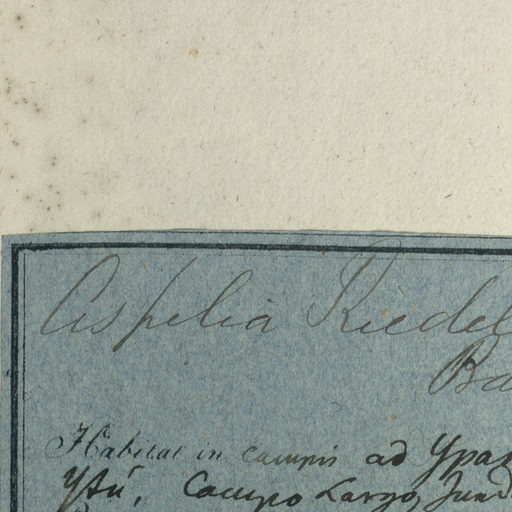 Aspilia Riedel
Ba
Habitat in campis ad Ypan
Ytú, Campo Largo, Jund